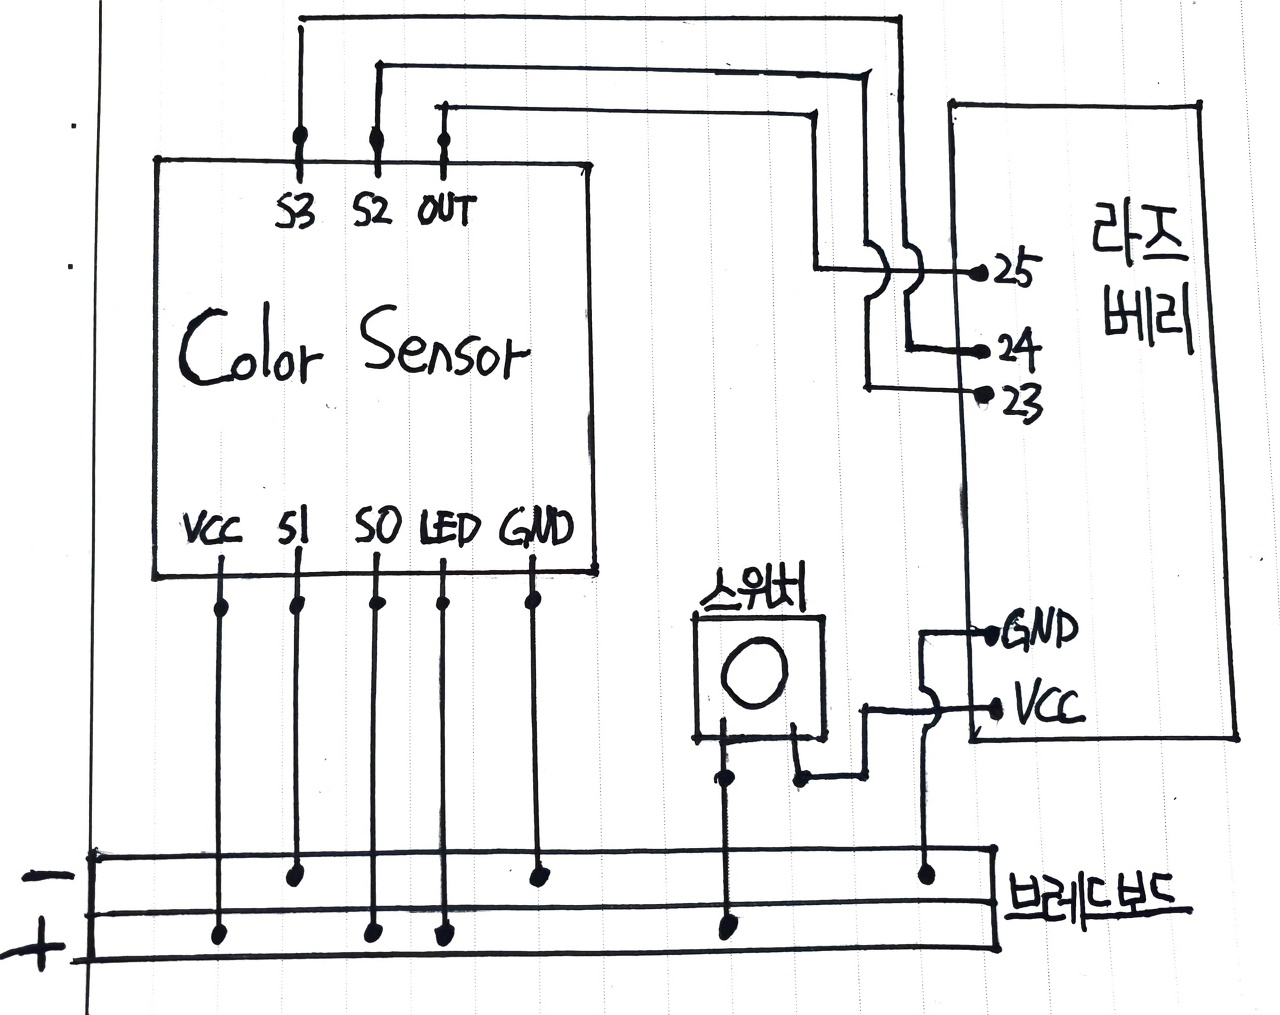 S3 S2 OUT
Color Sensor
VCC S1 S0 LED GND
라즈
베리
25
24
23
GND
VCC
스위치
-
+
브레드보드